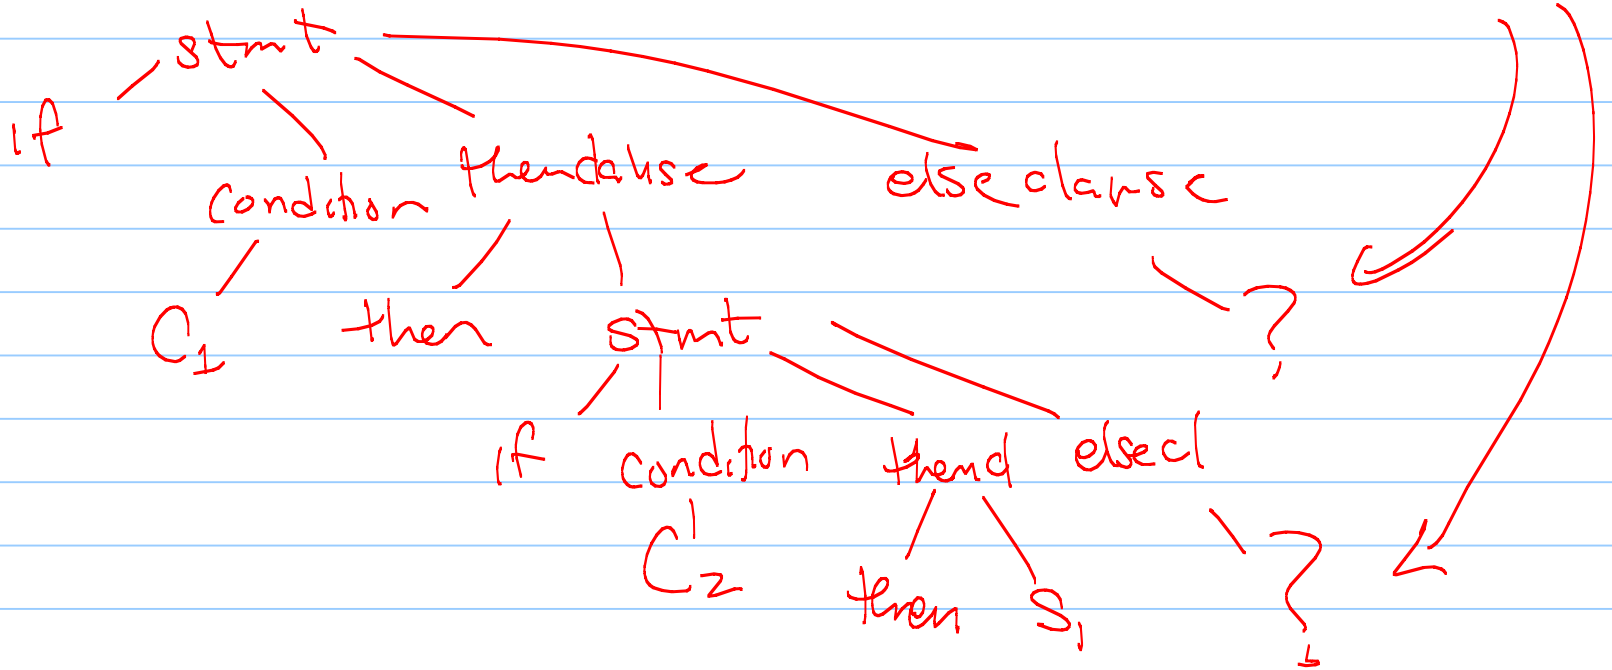 stmt
if
condition thenclause elseclause
C1 then stmt ?
if condition thencl elsecl
C2 then S1 ?